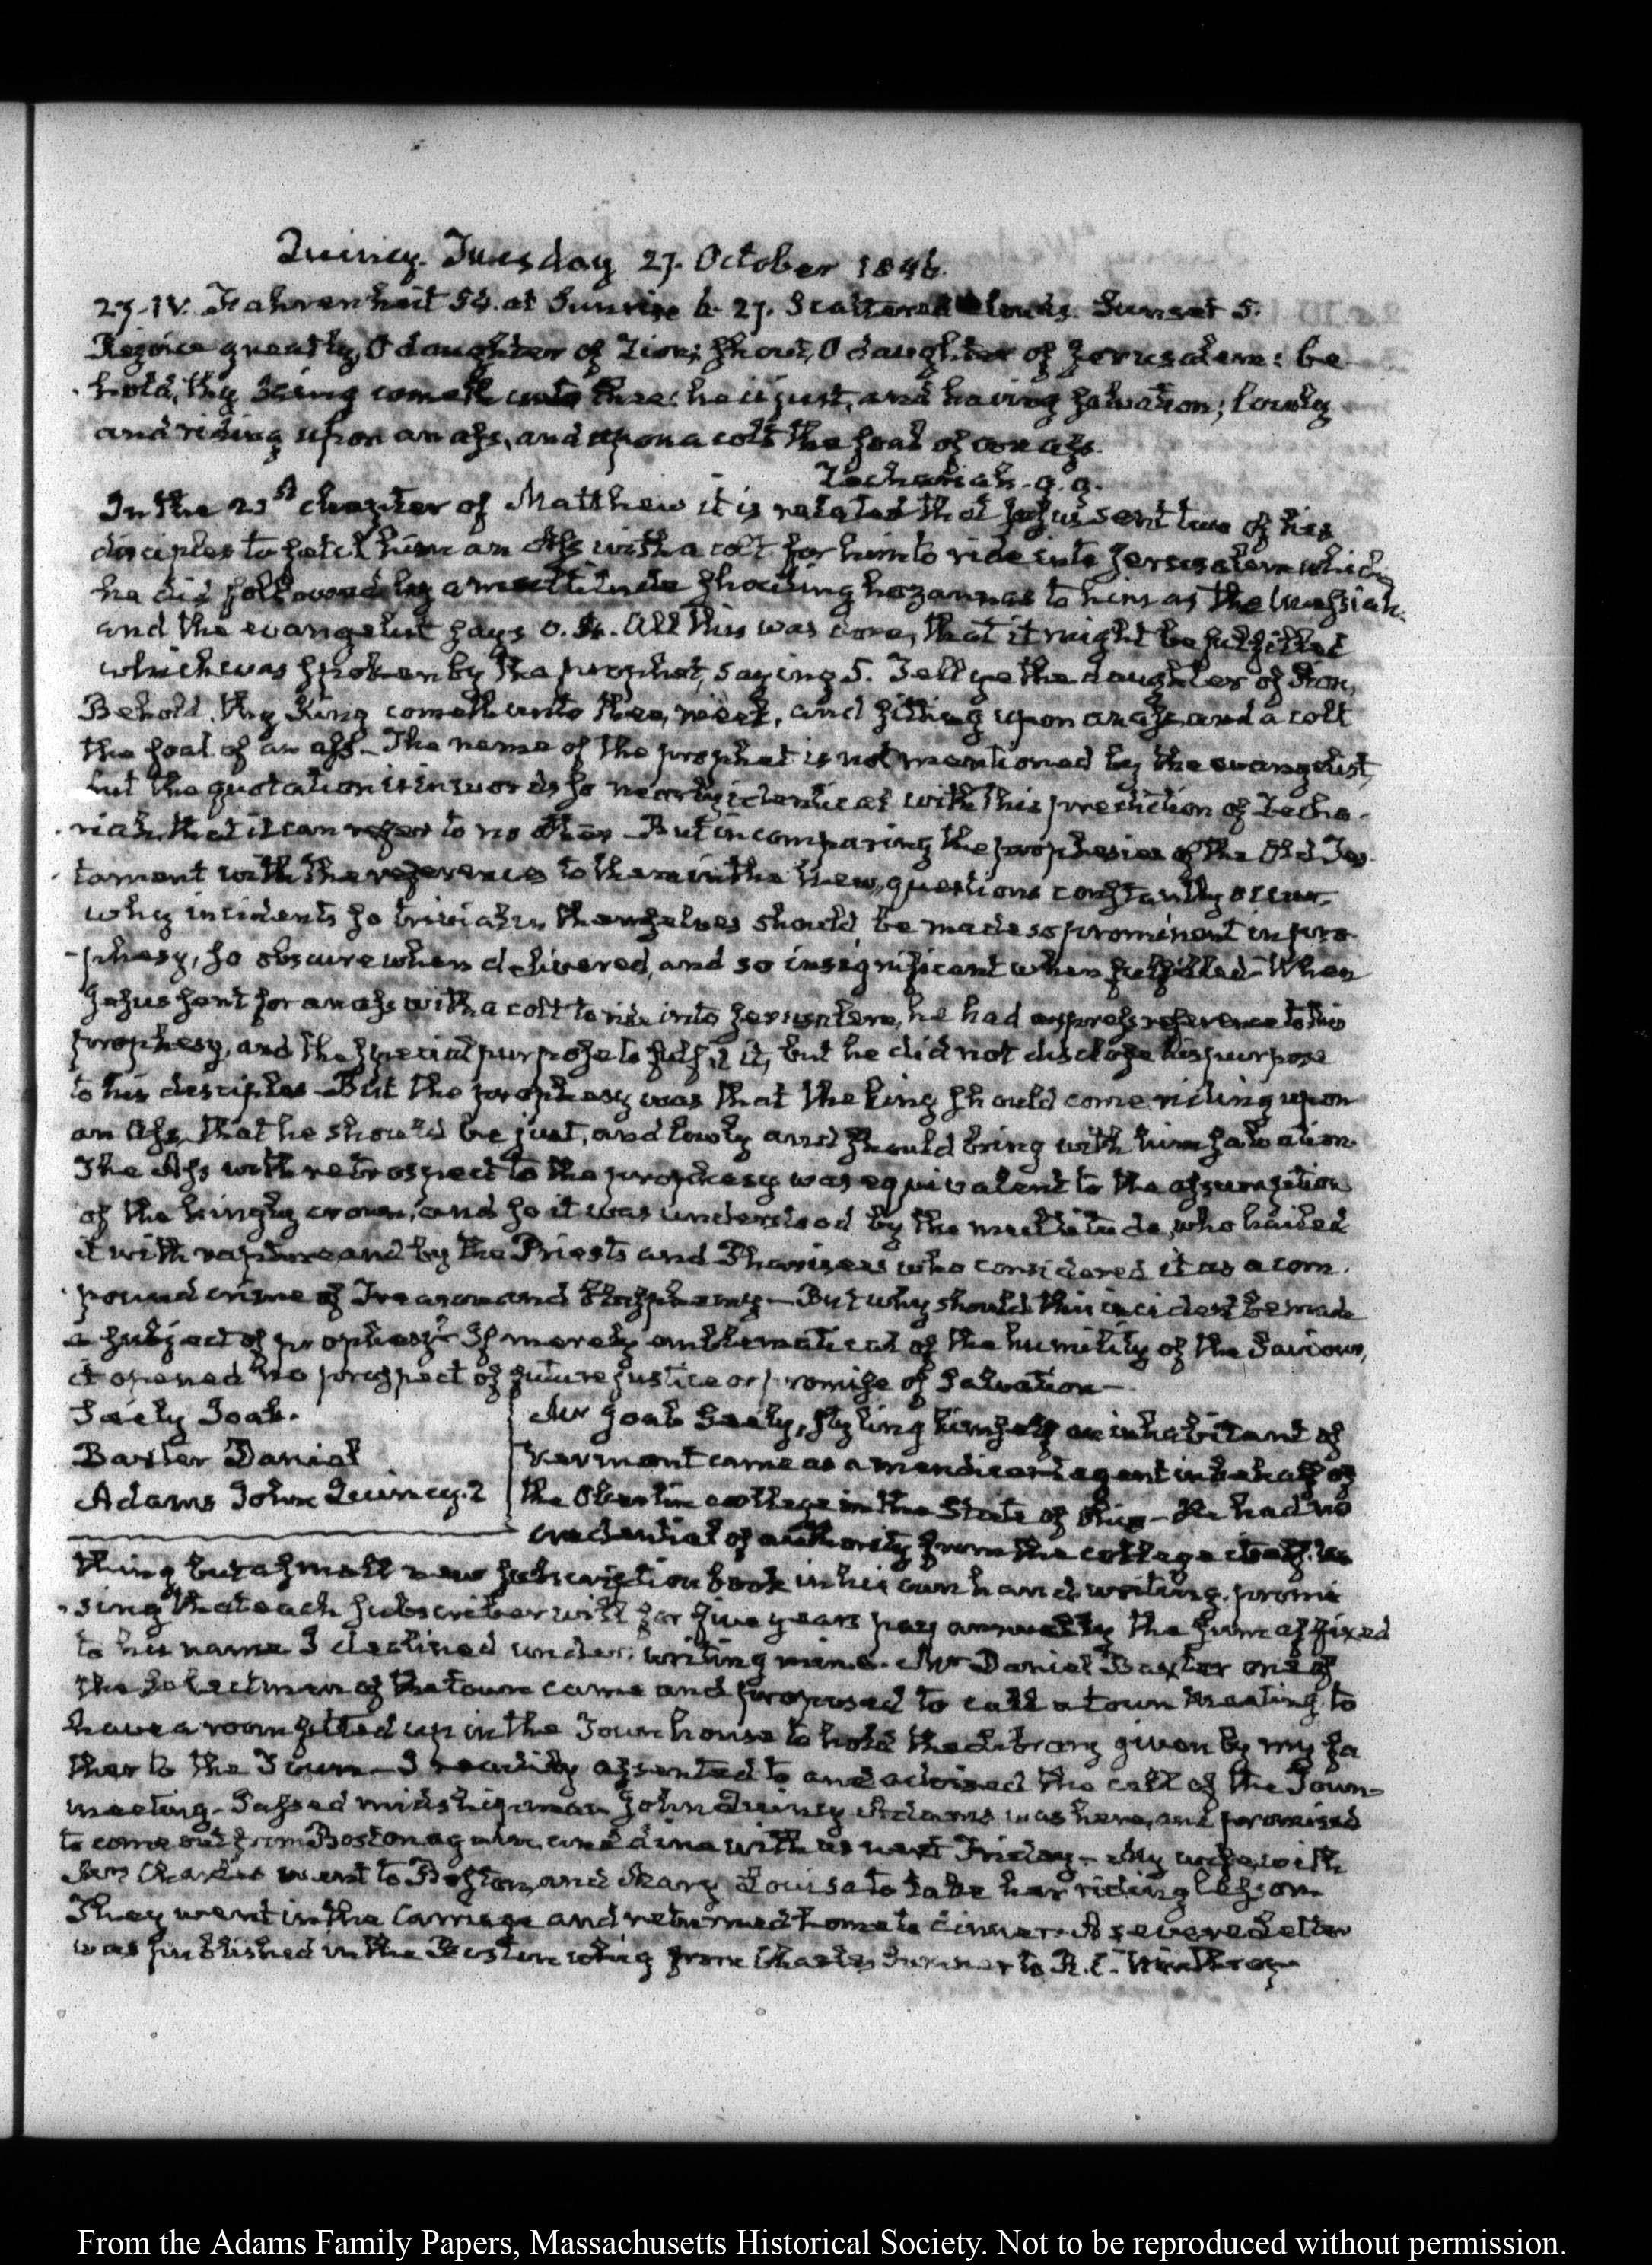 Quincy. Tuesday 27. October 1846.
27. IV. Fahrenheit 54. at Sunrise 6. 27. Scattered clouds. Sunset 5.
Rejoice greatly, O daughter of Zion; shout, O daughter of Jerusalem: be
hold, thy King cometh unto thee: he is just, and having salvation; lowly
and riding upon an ass, and upon a colt the foal of an ass.
Zechariah. 9. 9.
In the 21st chapter of Matthew it is related that Jesus sent two of his
disciples to fetch him an Ass with a colt for him to ride into Jerusalem which
he did followed by a multitude shouting hozannas to him as the Messiah.
and the evangelist says v. 4. All this was done, that it might be fulfilled
which was spoken by the prophet, saying 5. Tell ye the daughter of Sion,
Behold, thy King cometh unto thee, meek, and sitting upon an ass, and a colt
the foal of an ass— The name of the prophet is not mentioned by the evangelist,
but the quotation is in words so nearly identical with this prediction of Zecha-
riah, that it can refer to no other— But in comparing the prophesies of the Old Tes-
tament with the references to them in the New, questions constantly occur
why incidents so trivial in themselves should be made so prominent in pro-
-phesy, so obscure when delivered, and so insignificant when fulfilled— When
Jesus sent for an ass with a colt to ride into Jerusalem, he had express reference to this
prophesy, and the special purpose to fulfil it, but he did not disclose his purpose
to his disciples— But the prophesy was that the king should come riding upon
an Ass, that he should be just, and lowly and should bring with him salvation.
The Ass with retrospect to the prophesy was equivalent to the assumption
of the kingly crown, and so it was understood by the multitude, who hailed
it with rapture and by the Priests and Pharisees who considered it as a com-
pound crime of Treason and blasphemy— But why should this incident be made
a subject of prophesy? If merely emblematical of the humility of the Saviour,
it opened no prospect of future justice or promise of Salvation—
Seely Joab.
Baxter Daniel
Adams John Quincy. 2
Mr Joab Seely, styling himself an inhabitant of
Vermont came as a mendicant agent in behalf of
the Oberlin college in the State of Ohio— He had no
credential of authority from the college itself. No
thing but a small new subscription book in his own hand writing. promi
-sing that each subscriber will for five years pay annually the sum affixed
to his name I declined under-writing mine. Mr Daniel Baxter one of
the Selectmen of the town came and proposed to call a town meeting to
have a room fitted up in the Town house to hold the Library given by my fa
ther to the Town— I readily assented to and advised the call of the Town-
meeting— Passed midshipman John Quincy Adams was here, and promised
to come out from Boston again, and dine with us next Friday— My wife, with
Mrs Charles went to Boston, and Mary Louisa to take her riding lesson.
They went in the Carriage and returned home to dinner. A severe Letter
was published in the Boston whig from Charles Sumner to R. C. Winthrop—
From the Adams Family Papers, Massachusetts Historical Society. Not to be reproduced without permission.